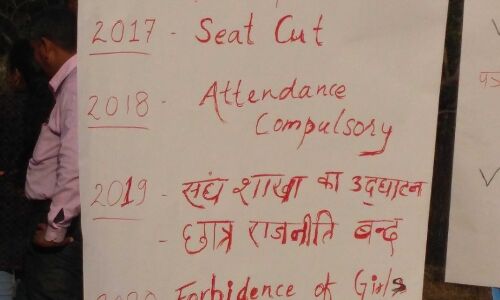 2017 - Seat Cut
2018 - Attendance
Compulsory
2019 - संघ शाखा का उद्घाटन
- छात्र राजनीति बन्द
2020 Forbidence of Girls